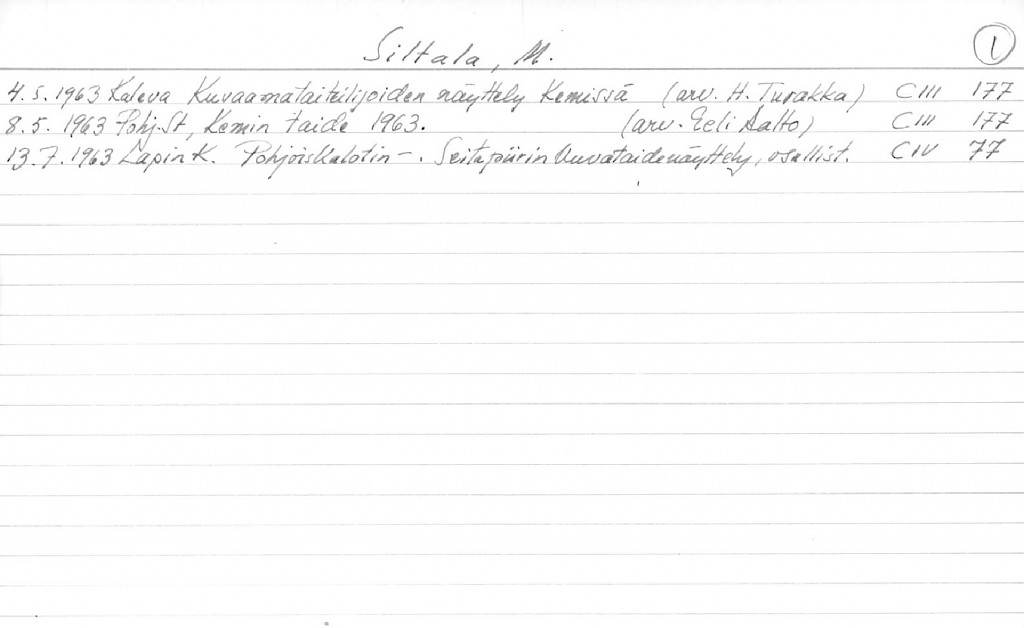 Siltala, M.
1
4.5.1963 Kaleva Kuvaamataiteilijoiden näyttely Kemissä (arv. H. Turakka) CIII 177
8.5.1963 Pohj.St, Kemin taide 1963. (arv. Eeli Aalto) CIII 177
13.7.1963 Lapin K. Pohjoiskalotin -. Seitapiirin kuvataidenäyttely, osallist. CIV 77